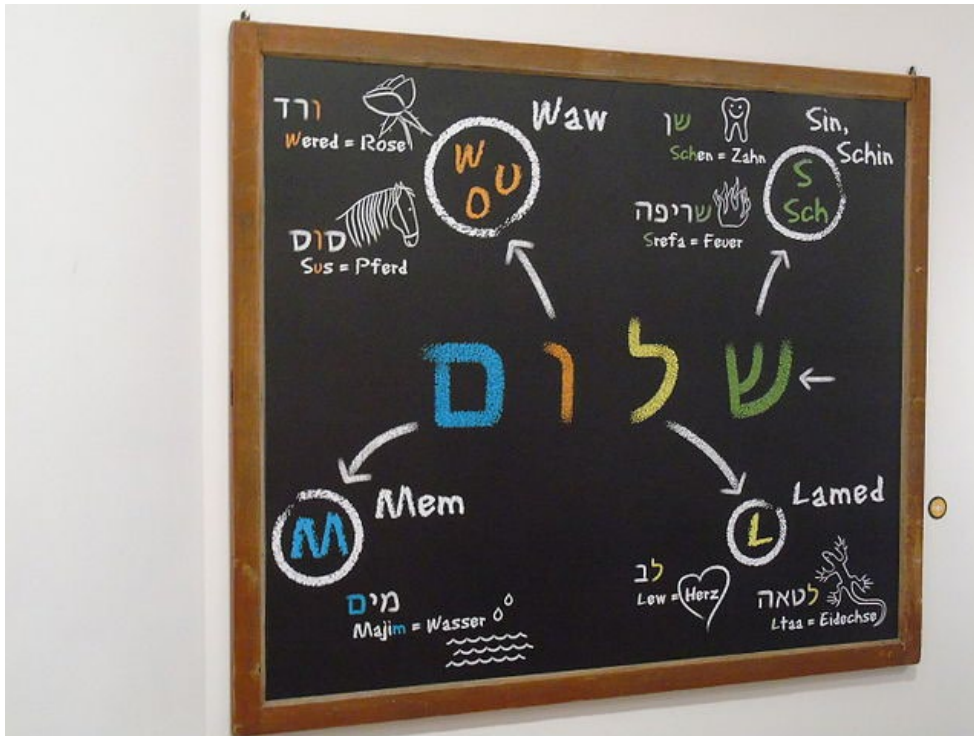 ורד
Wered = Rose
Waw
W
U
O
סוס
Sus = Pferd
שן
Schen = Zahn
Sin,
Schin
S
Sch
שריפה
Srefa = Feuer
שלום
M
Mem
מים
Majim = Wasser
Lamed
L
לב
Lew = Herz
לטאה
Ltaa = Eidechse